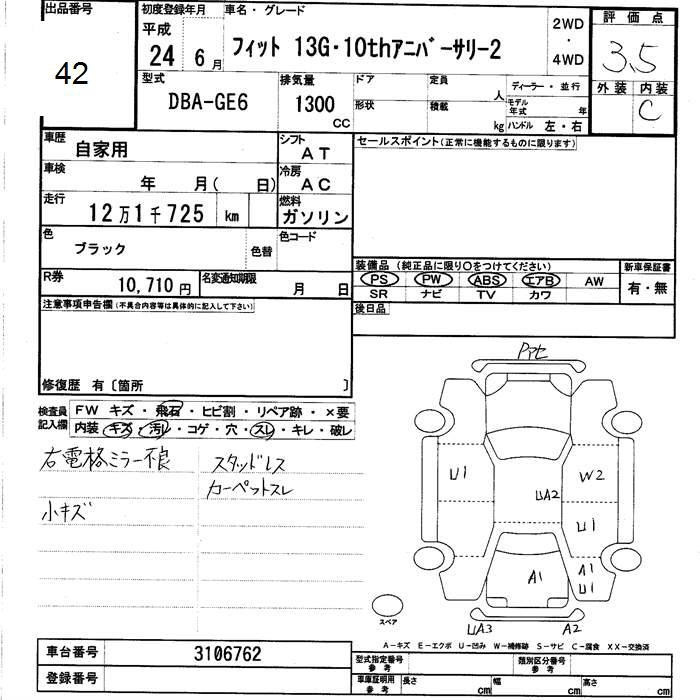 出品番号 初度登録年月 車名・グレード 2WD ・ 4WD 評価点
42 平成 24 6月 フィット 13G・10thアニバーサリー2 3.5
型式 排気量 ドア 定員 人 ディーラー・並行 外装 内装
DBA-GE6 1300 CC 形状 積載 kg モデル年式 年 C
ハンドル 左・右
車歴 自家用 シフト AT セールスポイント(正常に機能するものに限ります)
車検 年 月( 日) 冷房 AC
走行 12万1千725 km 燃料 ガソリン
色 ブラック 色替 色コード
装備品 (純正品に限り○をつけてください) 新車保証書
R券 10,710円 名変通知期限 月 日 PS PW ABS エアB AW 有・無
SR ナビ TV カワ
注意事項申告欄(不具合内容等は具体的に記入して下さい) 後日品
修復歴 有〔箇所 〕
検査員記入欄 FW キズ・飛石・ヒビ割・リペア跡・×要
内装 キズ・汚レ・コゲ・穴・スレ・キレ・破レ
右電格ミラー不良 スタッドレス
カーペットスレ
小キズ
Pアセ
U1 W2
UA2
U1
A1 A1
U1
スペア UA3 A2
A-キズ E-エクボ U-凹み W-補修跡 S-サビ C-腐食 XX-交換済
車台番号 3106762 型式指定番号 参考 類別区分番号 参考
登録番号 車庫証明用 参考 長さ cm 幅 cm 高さ cm